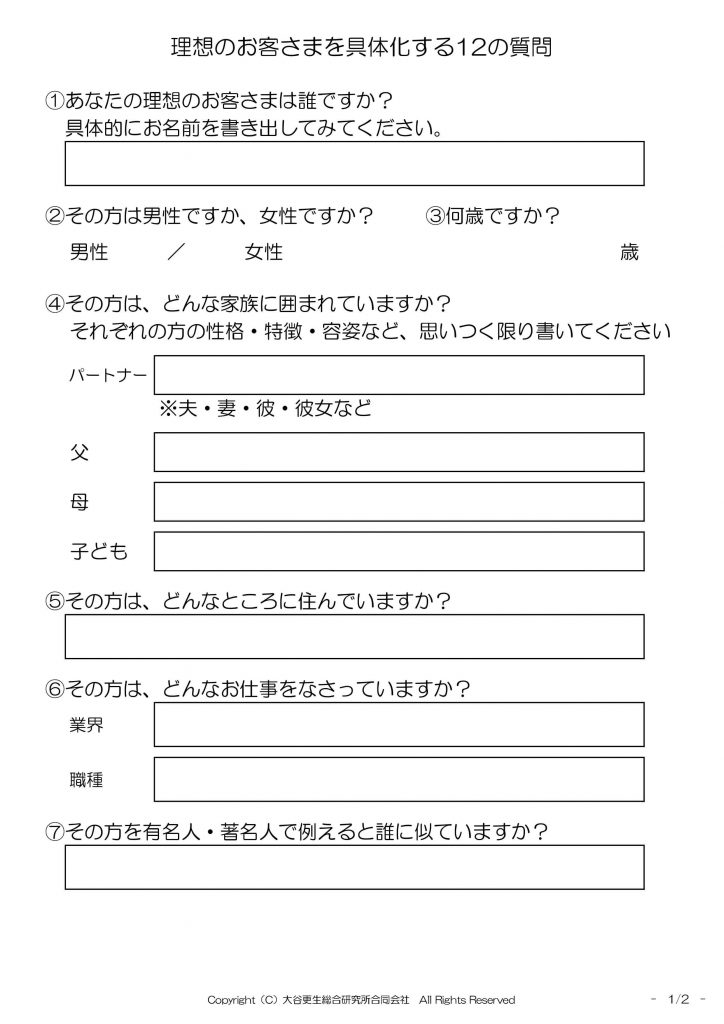 理想のお客さまを具体化する12の質問
①あなたの理想のお客さまは誰ですか？
具体的にお名前を書き出してみてください。
②その方は男性ですか、女性ですか？ ③何歳ですか？
男性 ／ 女性 歳
④その方は、どんな家族に囲まれていますか？
それぞれの方の性格・特徴・容姿など、思いつく限り書いてください
パートナー
※夫・妻・彼・彼女など
父
母
子ども
⑤その方は、どんなところに住んでいますか？
⑥その方は、どんなお仕事をなさっていますか？
業界
職種
⑦その方を有名人・著名人で例えると誰に似ていますか？
Copyright（C）大谷更生総合研究所合同会社 All Rights Reserved - 1/2 -